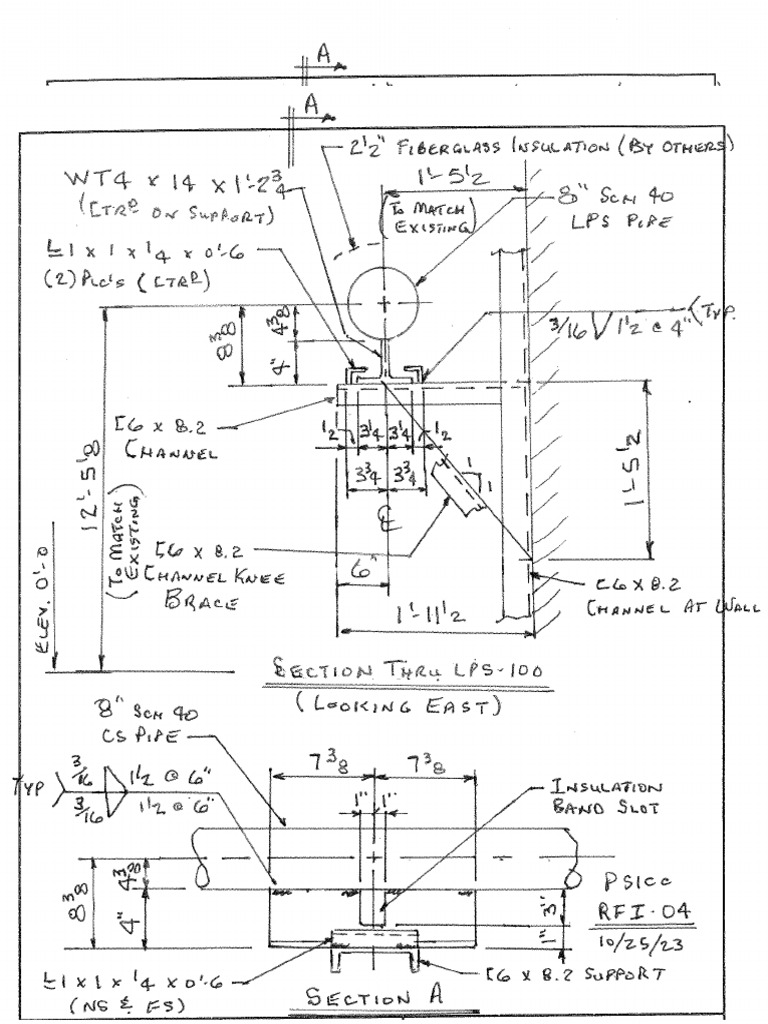 A
A
2½" FIBERGLASS INSULATION (BY OTHERS)
WT4 x 14 x 1'-2¾
(CTRD ON SUPPORT)
1'-5½
(TO MATCH EXISTING)
8" SCH 40
LPS PIPE
L1 x 1 x ¼ x 0'-6
(2) PLC'S (CTRD)
8⅜
4⅜
4"
3/16 1½ @ 4" (TYP.
[6 x 8.2
CHANNEL
½ 3¼ 3¼ ½
3¾ 3¾
1
1
1'-5½
12'-5⅛
(TO MATCH EXISTING)
ELEV. 0'-0
℄
[6 x 8.2
CHANNEL KNEE
BRACE
6"
1'-11½
[6 x 8.2
CHANNEL AT WALL
SECTION THRU LPS-100
(LOOKING EAST)
8" SCH 40
CS PIPE
TYP
3/16 1½ @ 6"
3/16 1½ @ 6"
7⅜ 7⅜
1" 1"
INSULATION
BAND SLOT
8⅜
4⅜
4"
3"
1"
PSICC
RFI-04
10/25/23
L1 x 1 x ¼ x 0'-6
(NS & FS)
[6 x 8.2 SUPPORT
SECTION A